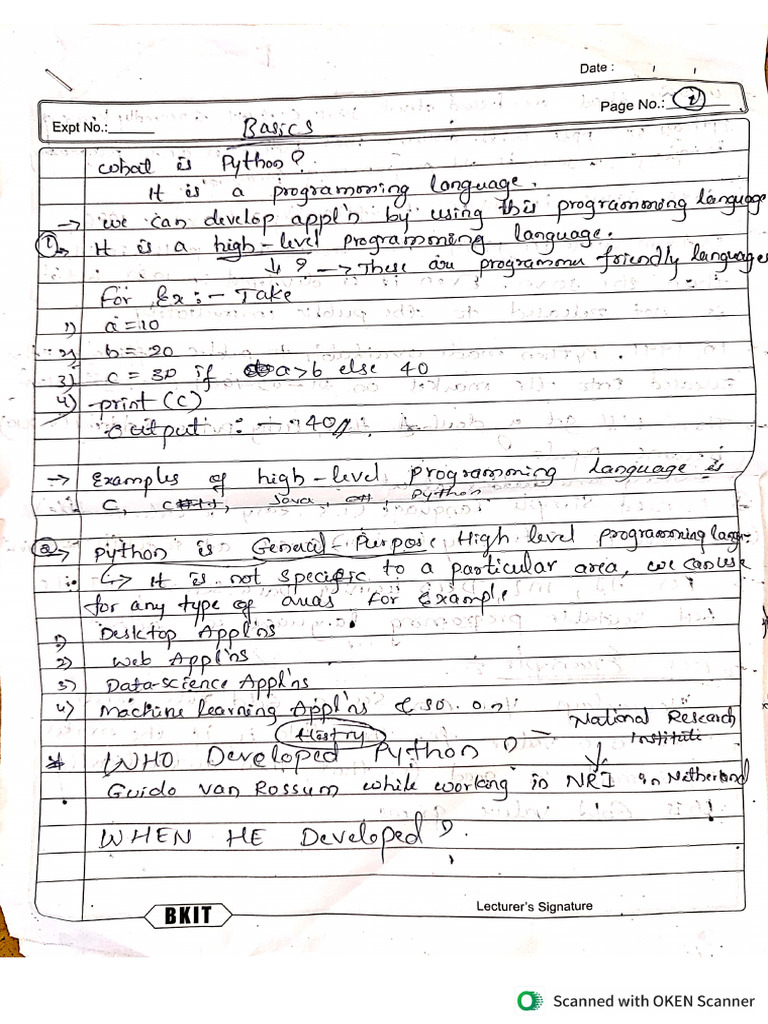 Date :
Page No.: 1
Expt No.:
Basics
What is Python?
It is a programming language.
→ we can develop appl'n by using this programming language
① → It is a high-level programming language.
↓ ? → These are programmer friendly languages
For Ex:- Take
1) a=10
2) b=20
3) c = 30 if a>b else 40
4) print (c)
output: - 40//.
→ Examples of high-level programming language is
C, Java, Python
② → python is General-Purpose High level programming lang-
↳ It is not specific to a particular area, we can use
for any type of areas for Example
1) Desktop Appl'ns
2) Web Appl'ns
3) Data-science Appl'ns
4) Machine Learning Appl'ns & so. on
Histry
National Research
Institute
* WHO Developed Python?
Guido van Rossum while working in NRI in Netherland
WHEN HE Developed?
BKIT
Lecturer's Signature
Scanned with OKEN Scanner